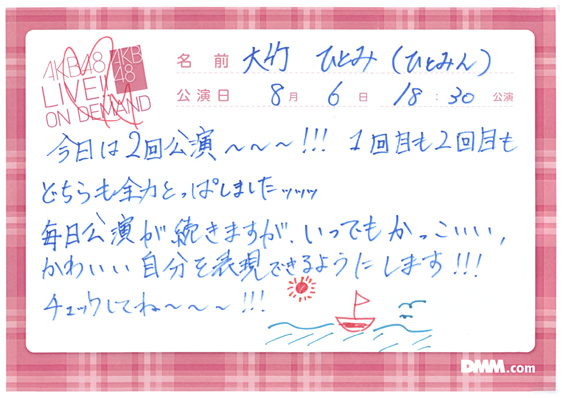 AKB48
LIVE!!
ON DEMAND
AKB
48
名前 大竹 ひとみ (ひとみん)
公演日 8月 6日 18:30 公演
今日は2回公演〜〜〜!!! 1回目も2回目も
どちらも全力とっぱしましたッッッ
毎日公演が続きますが、いつでもかっこいい,
かわいい自分を表現できるようにします!!!
チェックしてね〜〜〜!!!
DMM.com